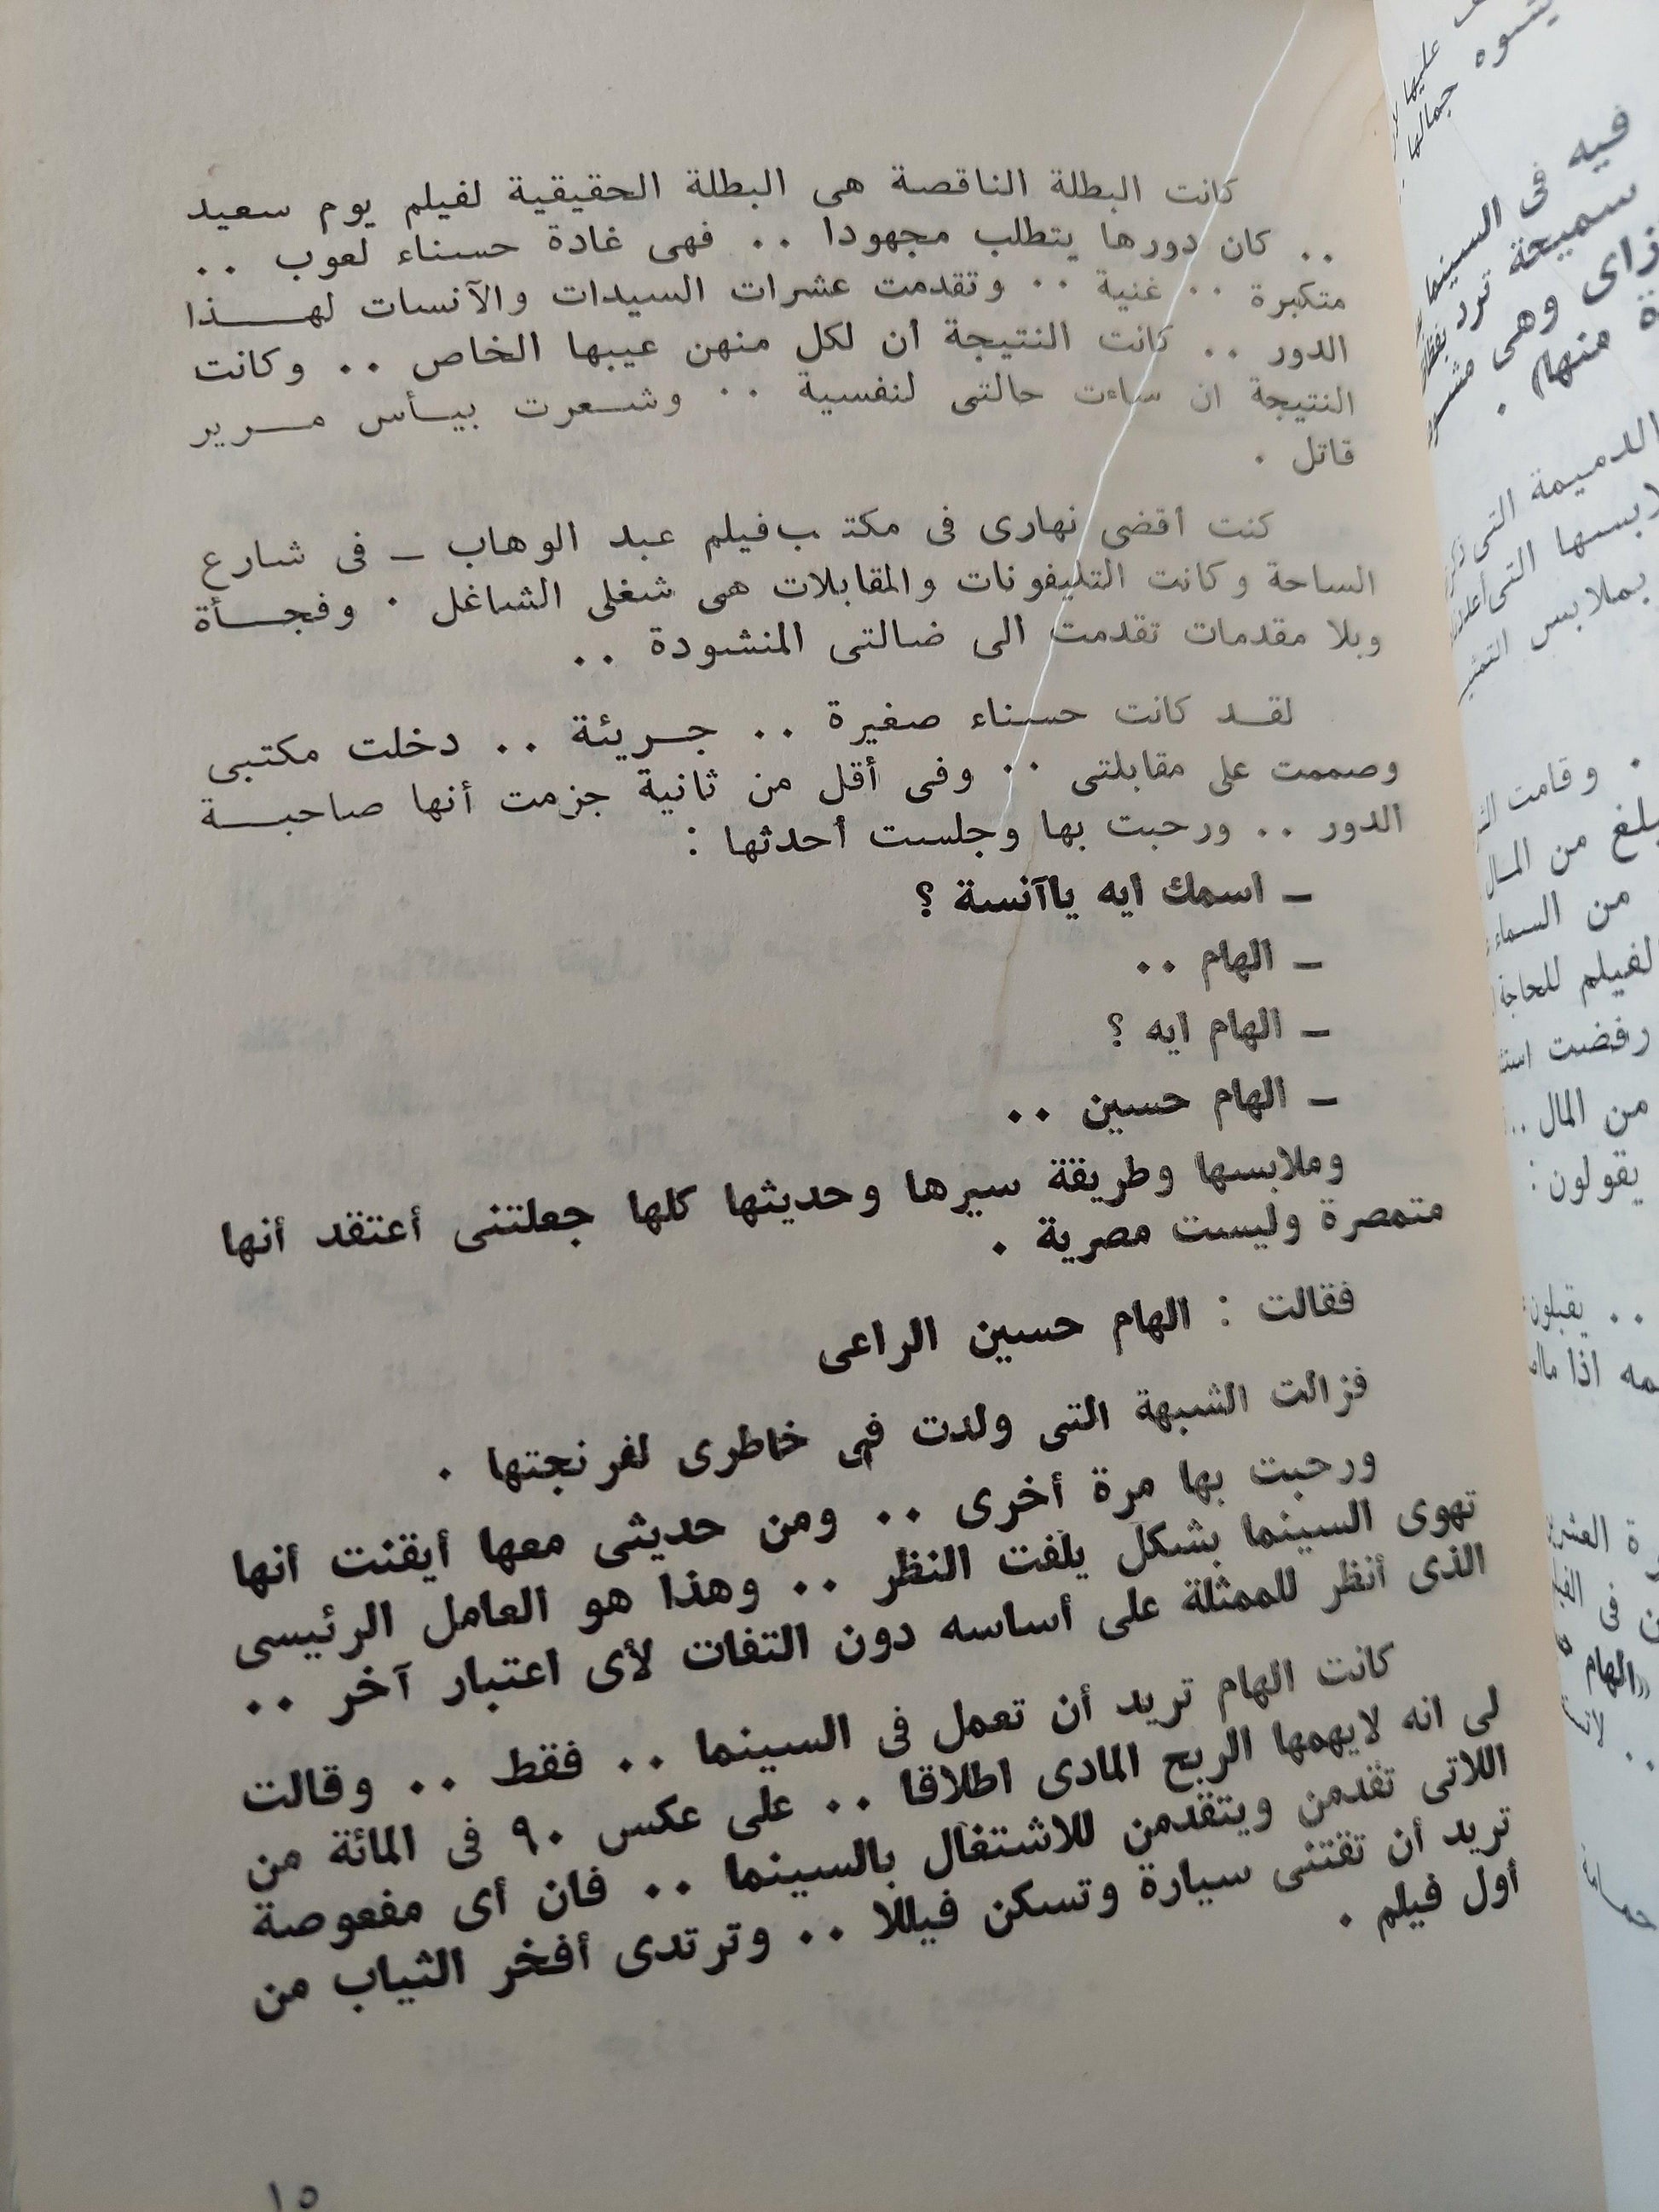 كانت البطلة الناقصة هى البطلة الحقيقية لفيلم يوم سعيد
.. كان دورها يتطلب مجهودا .. فهى غادة حسناء لعوب ..
متكبرة .. غنية .. وتقدمت عشرات السيدات والآنسات لهذا
الدور .. كانت النتيجة أن لكل منهن عيبها الخاص .. وكانت
النتيجة ان ساءت حالتى لنفسية .. وشعرت بيأس مرير
قاتل .
كنت أقضى نهارى فى مكتب فيلم عبد الوهاب ـ فى شارع
الساحة وكانت التليفونات والمقابلات هى شغلى الشاغل . وفجأة
وبلا مقدمات تقدمت الى ضالتى المنشودة ..
لقد كانت حسناء صغيرة .. جريئة .. دخلت مكتبى
وصممت على مقابلتى .. وفى أقل من ثانية جزمت أنها صاحبة
الدور .. ورحبت بها وجلست أحدثها :
ـ اسمك ايه ياآنسة ؟
ـ الهام ..
ـ الهام ايه ؟
ـ الهام حسين ..
وملابسها وطريقة سيرها وحديثها كلها جعلتنى أعتقد أنها
متمصرة وليست مصرية .
فقالت : الهام حسين الراعى
فزالت الشبهة التى ولدت فى خاطرى لفرنجتها .
ورحبت بها مرة أخرى .. ومن حديثى معها أيقنت أنها
تهوى السينما بشكل يلفت النظر .. وهذا هو العامل الرئيسى
الذى أنظر للممثلة على أساسه دون التفات لأى اعتبار آخر ..
كانت الهام تريد أن تعمل فى السينما .. فقط .. وقالت
لى انه لايهمها الربح المادى اطلاقا .. على عكس ٩٠ فى المائة من
اللاتى تقدمن ويتقدمن للاشتغال بالسينما .. فان أى مفعوصة
تريد أن تقتنى سيارة وتسكن فيللا .. وترتدى أفخر الثياب من
أول فيلم .
١٥
عليها
جمالها
فيه فى السينما
سميحة ترد
ازاى وهى
منها» .
الدميمة التى
التى
بملابس
. وقامت
من المال
من السماء
لفيلم للحاجة
رفضت
من المال ..
يقولون :
.. يقبلون
اذا
فى
«الهام»